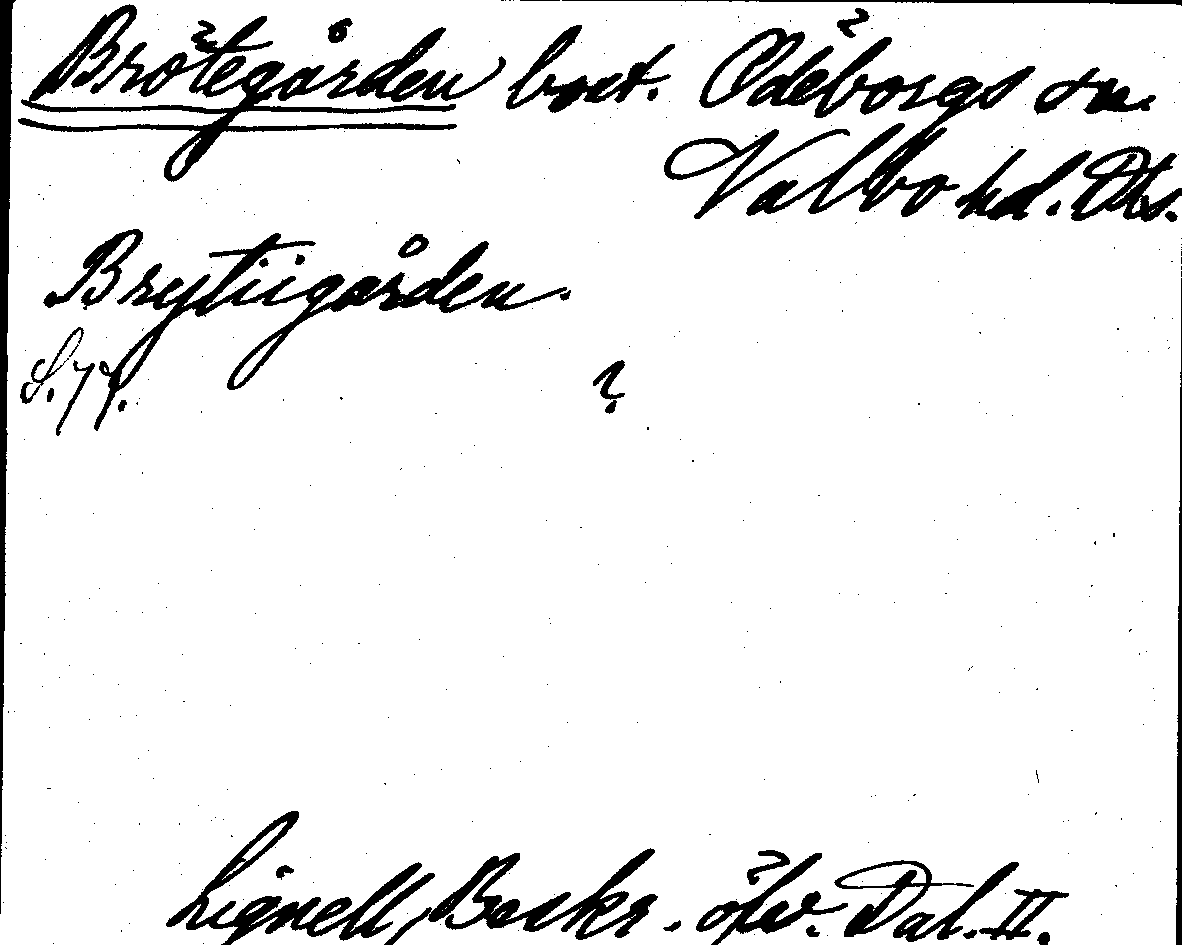 Brötegården bost. Ödeborgs sn.
Valbo hd. Dls.
Brytiigården.
S. 77.
?
Lignell, Beskr. öfv. Dal. II.